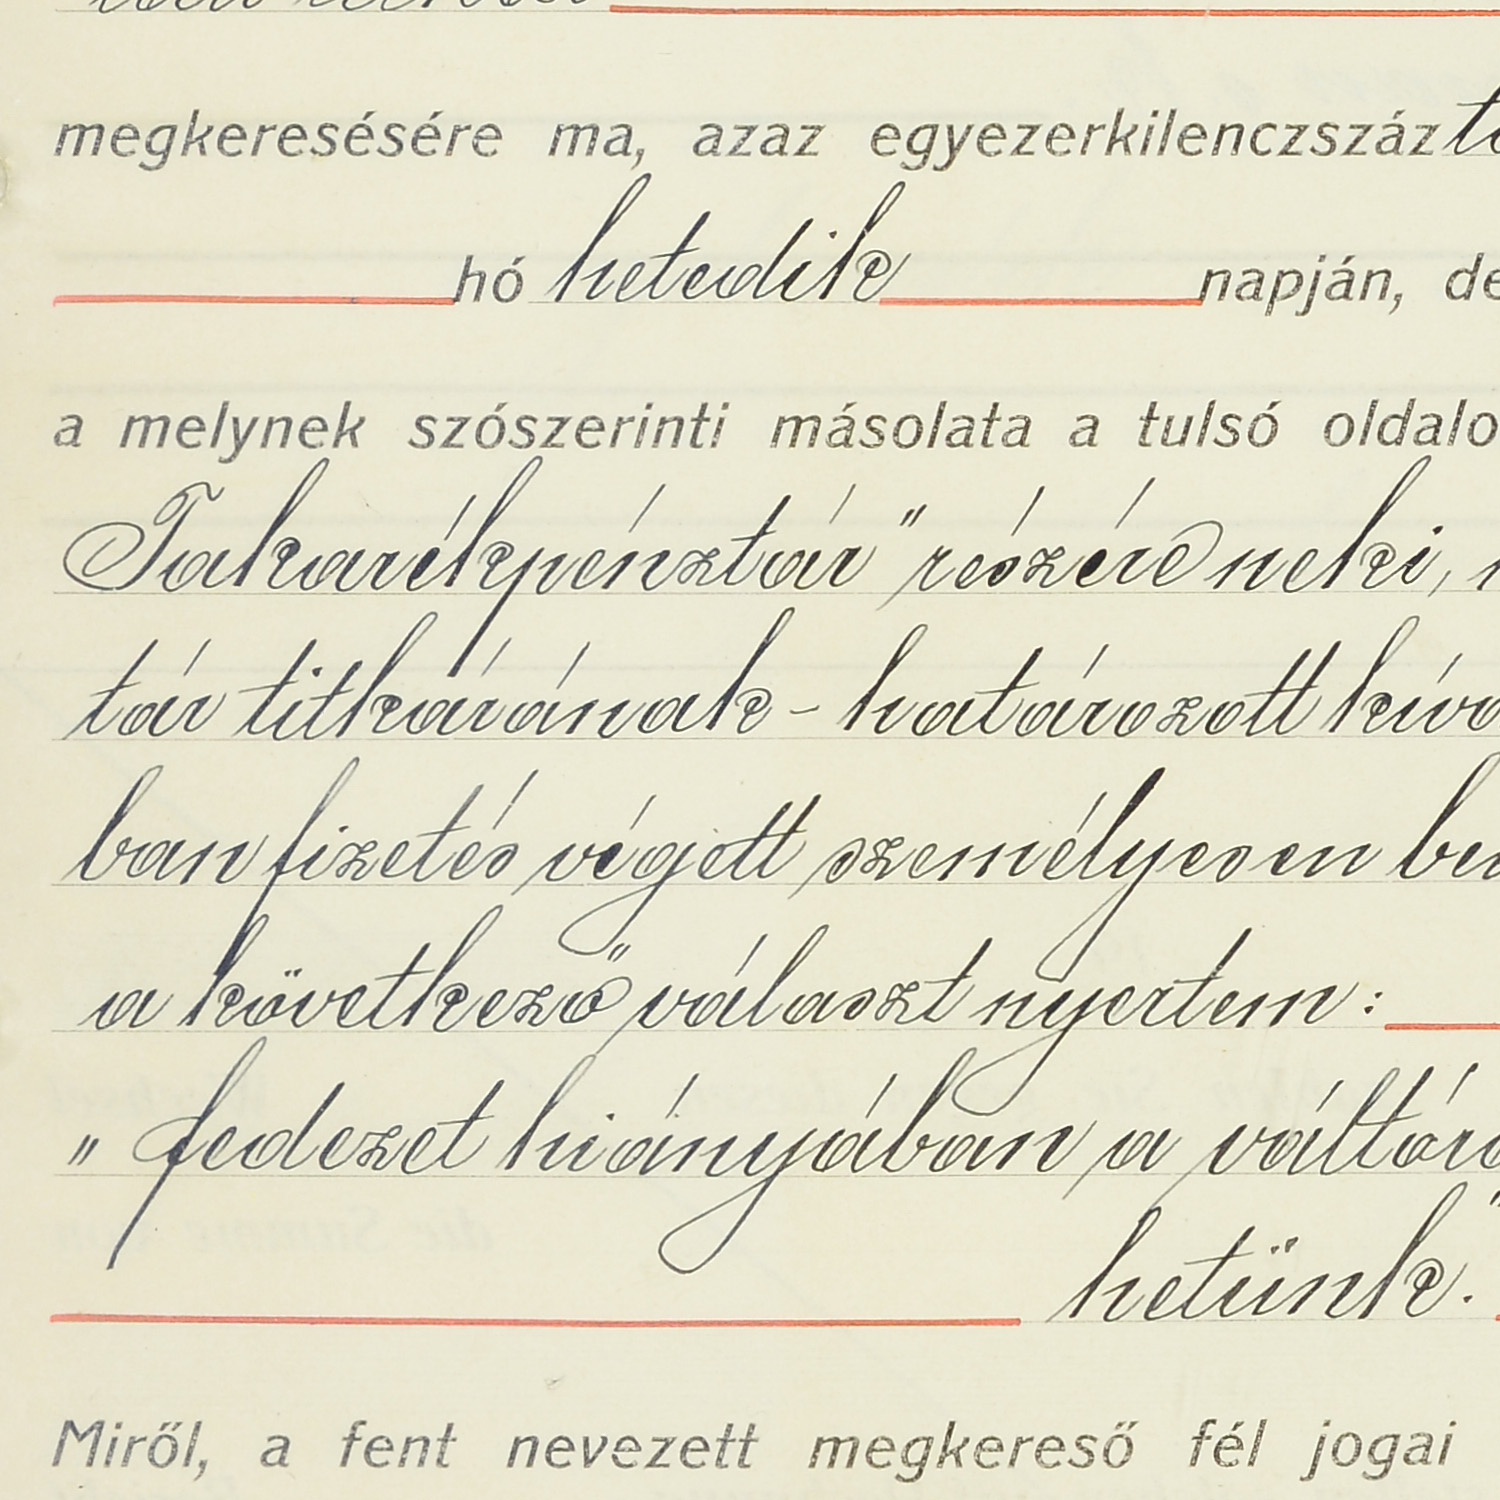 megkeresésére ma, azaz egyezerkilenczszáz
hó hetedik napján, de
a melynek szószerinti másolata a tulsó oldalo
Takarékpénztár" részére neki,
tár titkárának - határozott kívá
ban fizetés végett személyesen be
a következő választ nyertem:
" fedezet hiányában a váltóra
hetünk."
Miről, a fent nevezett megkereső fél jogai